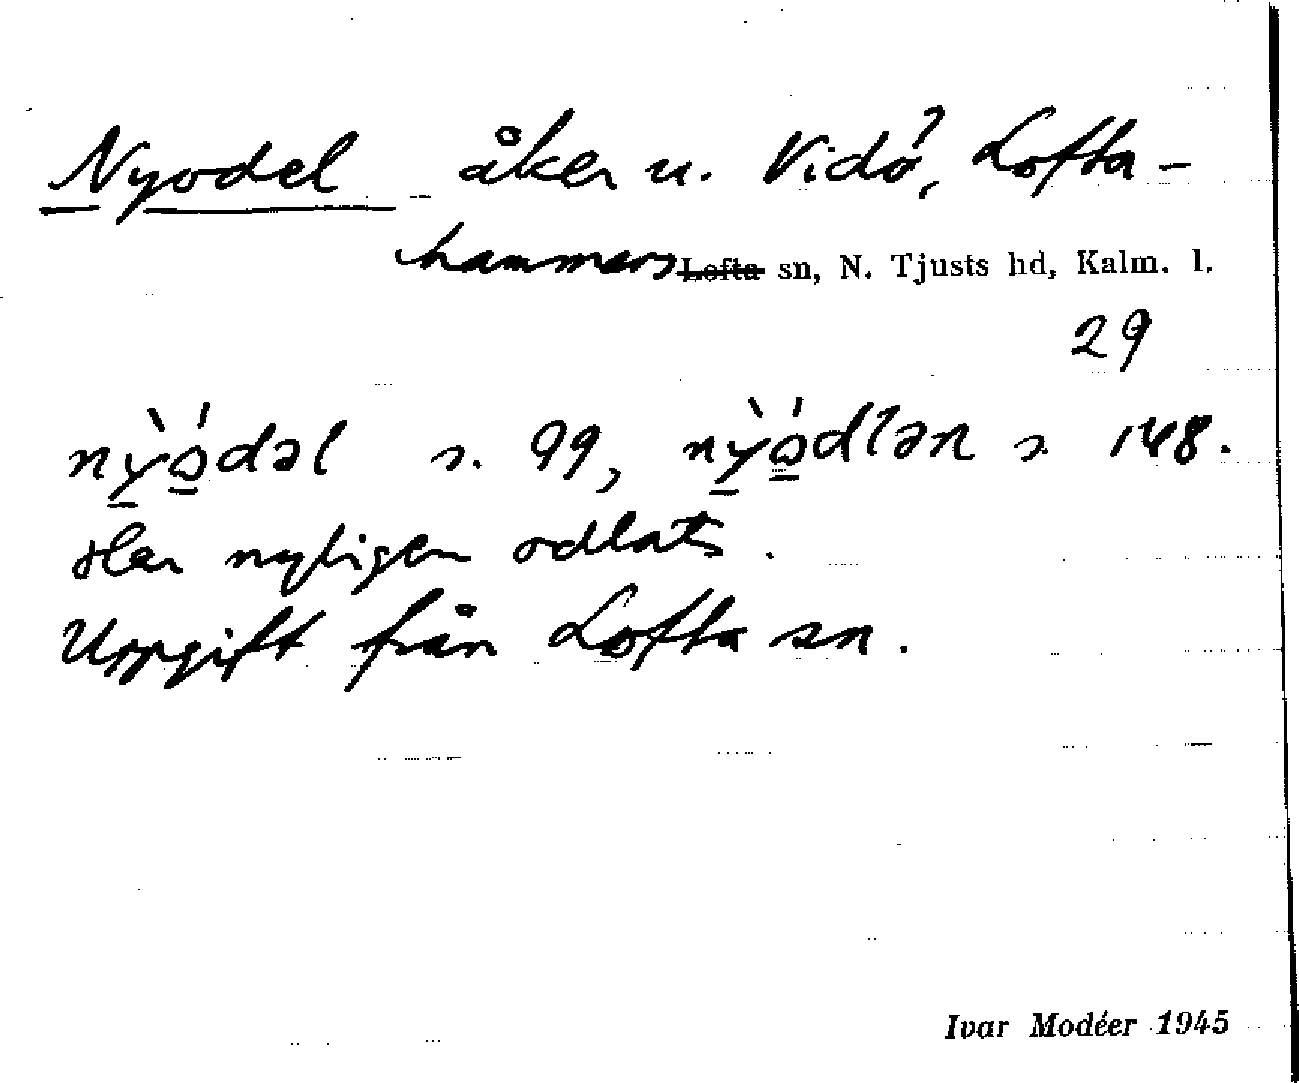 Nyodel åker u. Vidö, Lofta-
hammars Lofta sn, N. Tjusts hd, Kalm. l.
29
nỳ̠ó̠dəl s. 99, nỳ̠ó̠dlən s. 148.
Har nyligen odlats.
Uppgift från Lofta sn.
Ivar Modéer 1945